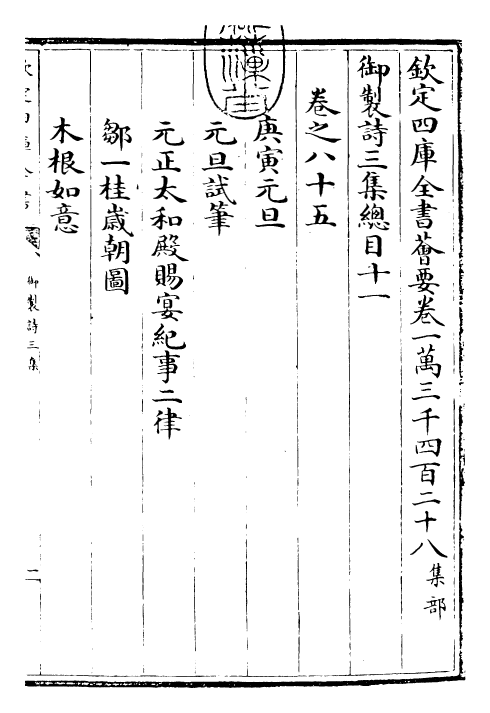 欽定四庫全書薈要卷一萬三千四百二十八 集部
御製詩三集總目十一
卷之八十五
庚寅元旦
元旦試筆
元正太和殿賜宴紀事二律
鄒一桂歲朝圖
木根如意
御製詩三集
二